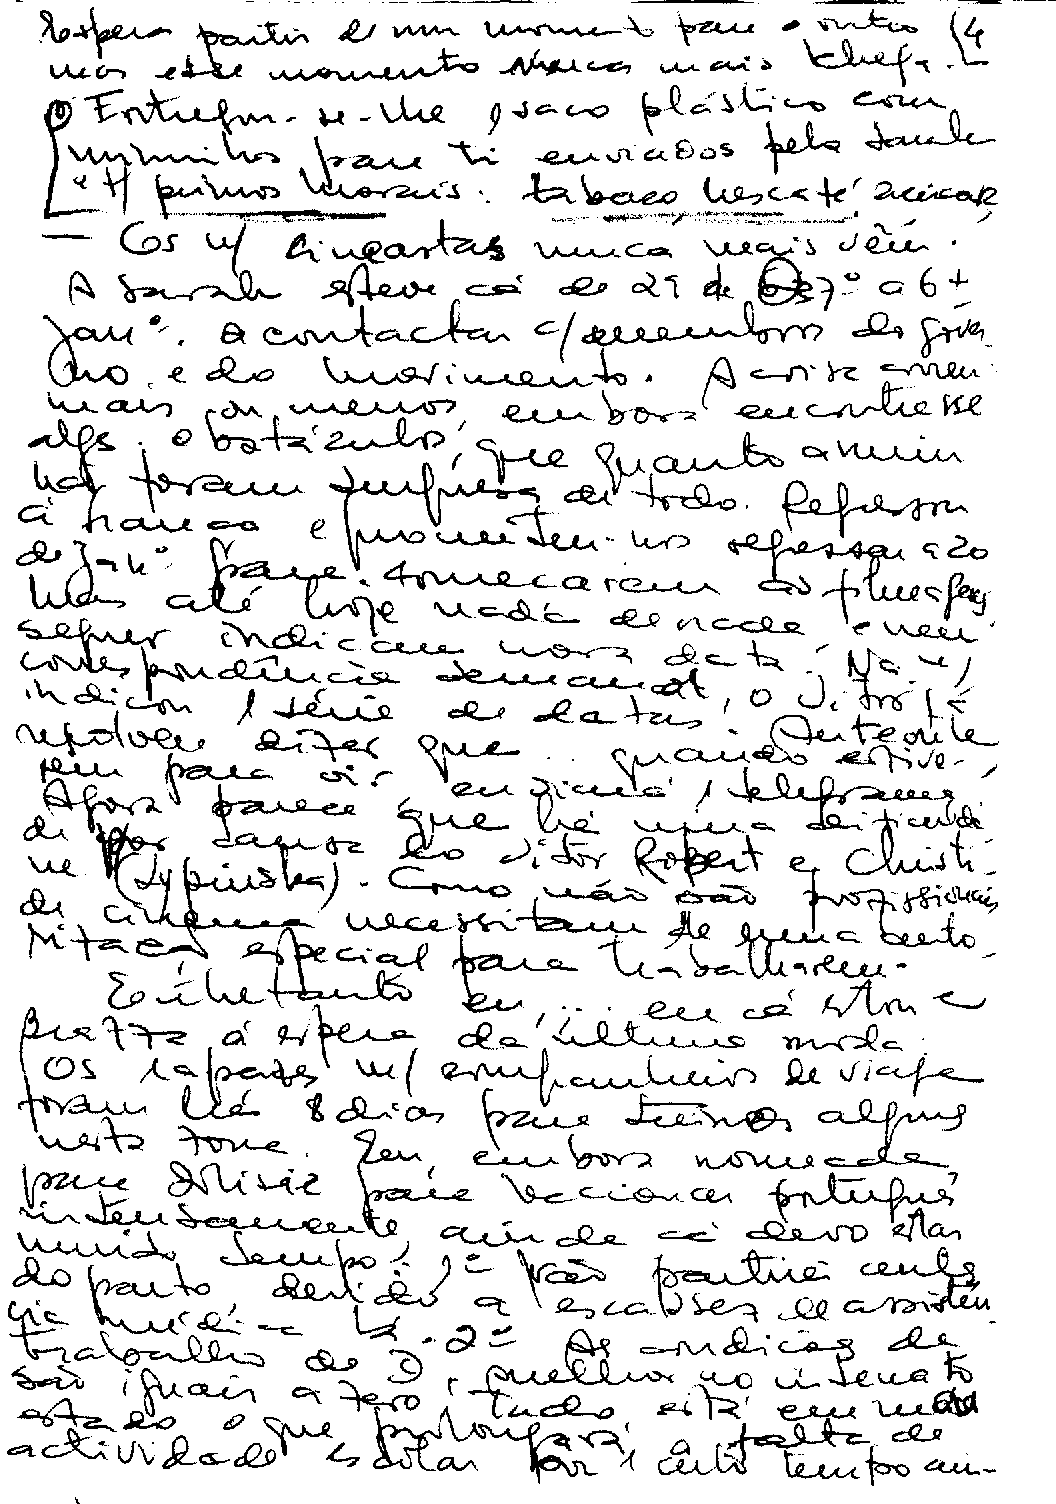 Espero partir de um momento para o outro (4
mas esse momento nunca mais chega.
Entregou-se-lhe 1 saco plástico com
miminhos para ti enviados pela Sarah
e t/ primos Morais: tabaco, nescafé, açúcar,
— Cos n/ cineastas nunca mais vêm.
A Sarah esteve cá de 29 de Dezº a 6
Janº. a contactar c/ membros do gover-
no e do movimento. A coisa correu
mais ou menos, embora encontrasse
algs. obstáculos, que quanto a mim
não foram surpresa de todo. Regressou
à França e prometeu-nos regressar a 20
de Janº para começarem as filmagens
Mas até hoje nada de nada e nem
sequer indicam nova data. Na
correspondência semanal, o Vitor já
indicou 1 série de datas. Anteonte
resolveu dizer que quando estive-
rem para vir, enviará 1 telegrama.
Agora parece que há uma dificulda-
de por causa do Vitor Robert e Christi-
ne (Lypinska). Como não são profissionais
de cinema necessitam de uma auto-
ritação especial para trabalharem.
Entretanto eu, ... eu cá estou e
à espera da última moda.
Os rapazes n/ companheiros de viagem
foram há 8 dias para alguns
nesta zona. Eu, embora nomeada
para para leccionar português
intensamente, ainda cá devo estar
muito tempo: 1º Não partirei antes
do parto devido à escassez de assistên-
cia médica lá. 2º As condições de
trabalho de D, melhor no internato
são iguais a zero, tudo está em mau
estado o que prolongará a falta de
actividade escolar por 1 certo tempo ain-